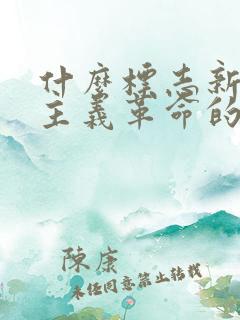 什麼標志新
主義革命的
陳康
未经同意禁止转载